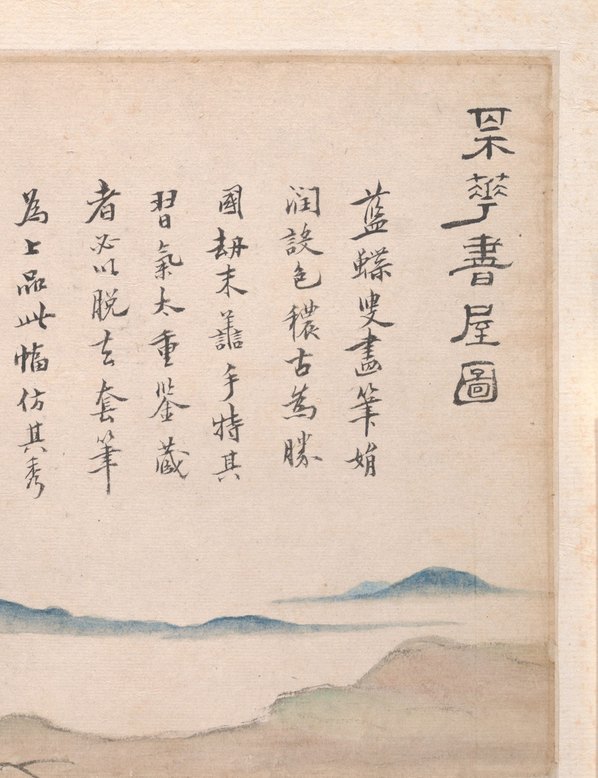 華書屋圖
藍蝶叟畫筆娟
润設色穠古為勝
國劫末譱手特其
習氣太重鉴藏
者必以脱去套筆
為上品此幅仿其秀